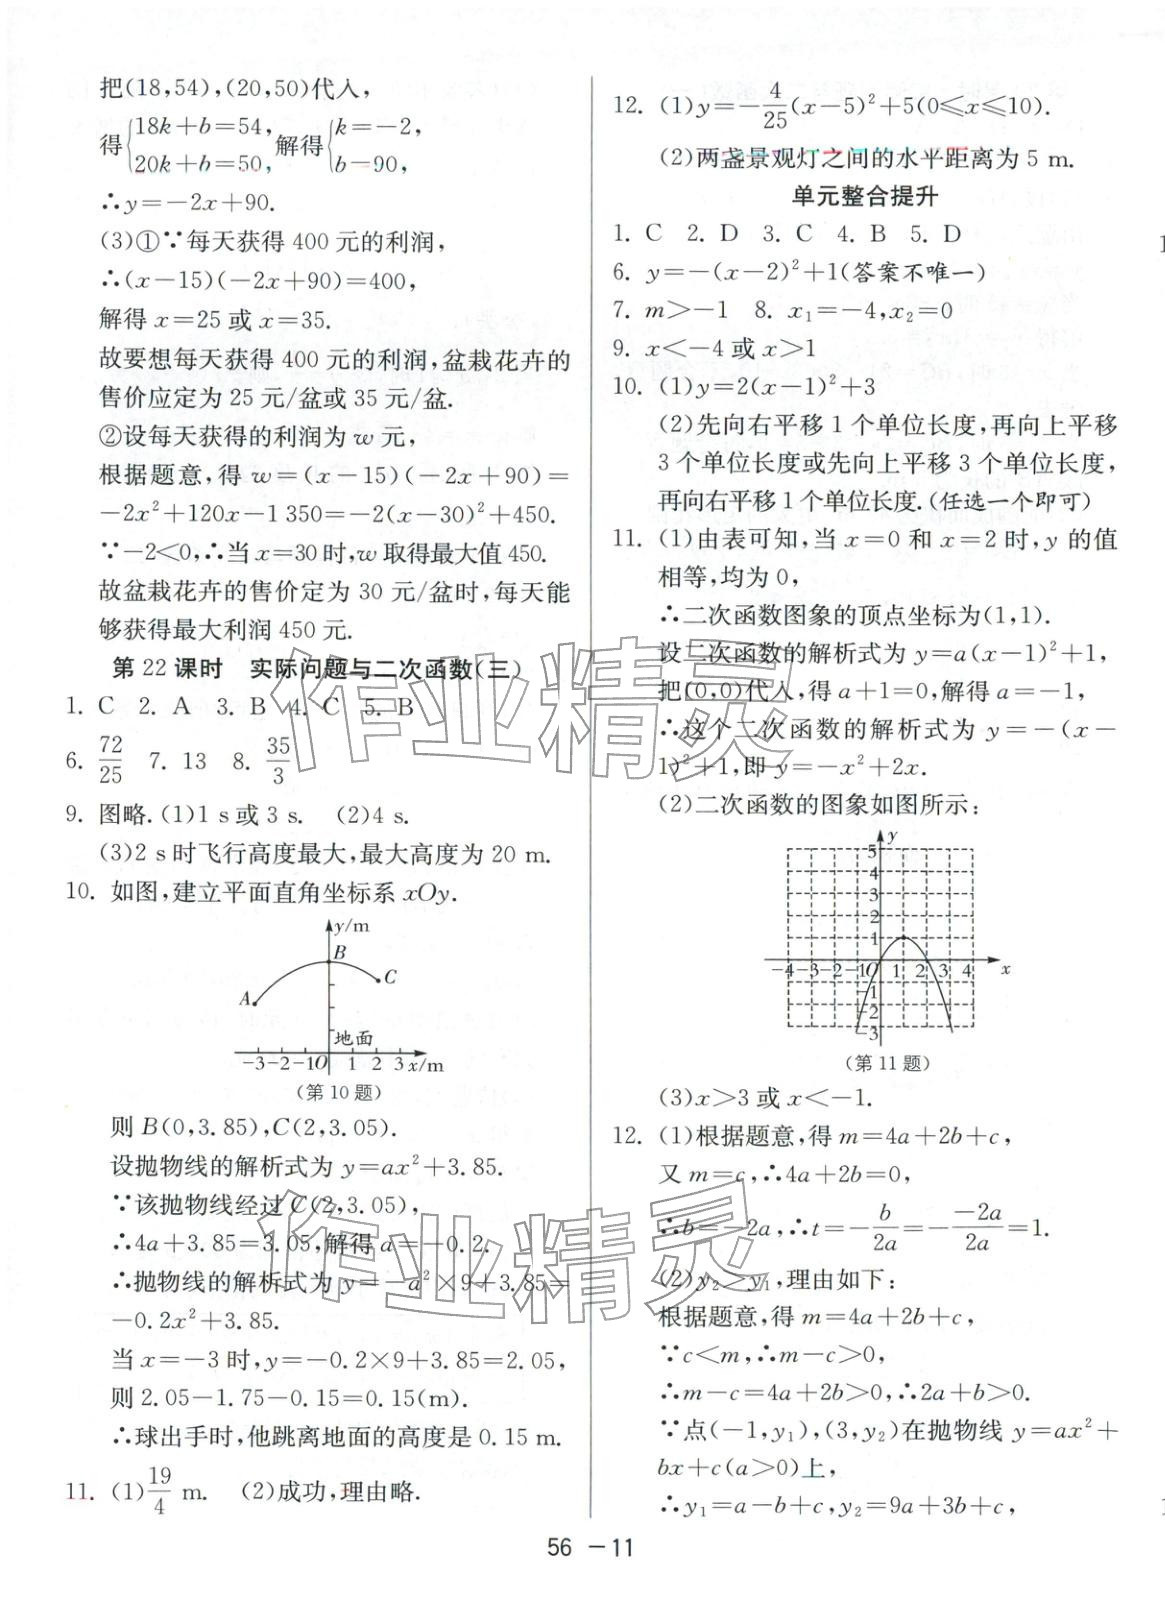 把(18,54),(20,50)代入,
得{18k+b=54, 20k+b=50, 解得{k=-2, b-90,
∴y=-2x+90.
(3)①∵每天获得 400 元的利润,
∴(x-15)(-2x+90)=400,
解得 x=25 或 x=35.
故要想每天获得 400 元的利润,盆栽花卉的
售价应定为 25 元/盆或 35 元/盆.
②设每天获得的利润为 w 元,
根据题意,得 w=(x-15)(-2x+90)=
-2x²+120x-1 350=-2(x-30)²+450.
∵-2<0,∴当 x=30 时,w 取得最大值 450.
故盆栽花卉的售价定为 30 元/盆时,每天能
够获得最大利润 450 元.
第 22 课时 实际问题与二次函数(三)
1. C 2. A 3. B 4. C 5. B
6. 72/25 7. 13 8. 35/3
9. 图略.(1)1 s 或 3 s. (2)4 s.
(3)2 s 时飞行高度最大,最大高度为 20 m.
10. 如图,建立平面直角坐标系 xOy.
y/m
B
C
A
地面
-3 -2 -1 O 1 2 3 x/m
(第 10 题)
则 B(0,3.85),C(2,3.05).
设抛物线的解析式为 y=ax²+3.85.
∵该抛物线经过 C(2,3.05),
∴4a+3.85=3.05,解得 a=-0.2.
∴抛物线的解析式为 y=-a²×9+3.85=
-0.2x²+3.85.
当 x=-3 时,y=-0.2×9+3.85=2.05,
则 2.05-1.75-0.15=0.15(m).
∴球出手时,他跳离地面的高度是 0.15 m.
11. (1)19/4 m. (2)成功,理由略.
12. (1)y=-4/25(x-5)²+5(0≤x≤10).
(2)两盏景观灯之间的水平距离为 5 m.
单元整合提升
1. C 2. D 3. C 4. B 5. D
6. y=-(x-2)²+1(答案不唯一)
7. m>-1 8. x₁=-4,x₂=0
9. x<-4 或 x>1
10. (1)y=2(x-1)²+3
(2)先向右平移 1 个单位长度,再向上平移
3 个单位长度或先向上平移 3 个单位长度,
再向右平移 1 个单位长度.(任选一个即可)
11. (1)由表可知,当 x=0 和 x=2 时,y 的值
相等,均为 0,
∴二次函数图象的顶点坐标为(1,1).
设二次函数的解析式为 y=a(x-1)²+1,
把(0,0)代入,得 a+1=0,解得 a=-1,
∴这个二次函数的解析式为 y=-(x-
1)²+1,即 y=-x²+2x.
(2)二次函数的图象如图所示:
y
5
4
3
2
1
-4 -3 -2 -1 O 1 2 3 4 x
-1
-2
-3
(第 11 题)
(3)x>3 或 x<-1.
12. (1)根据题意,得 m=4a+2b+c,
又 m=c,∴4a+2b=0,
∴b=-2a,∴t=-b/2a=--2a/2a=1.
(2)y₂>y₁,理由如下:
根据题意,得 m=4a+2b+c,
∵c<m,∴m-c>0,
∴m-c=4a+2b>0,∴2a+b>0.
∵点(-1,y₁),(3,y₂)在抛物线 y=ax²+
bx+c(a>0)上,
∴y₁=a-b+c,y₂=9a+3b+c,
56 -11
作业精灵
作业精灵